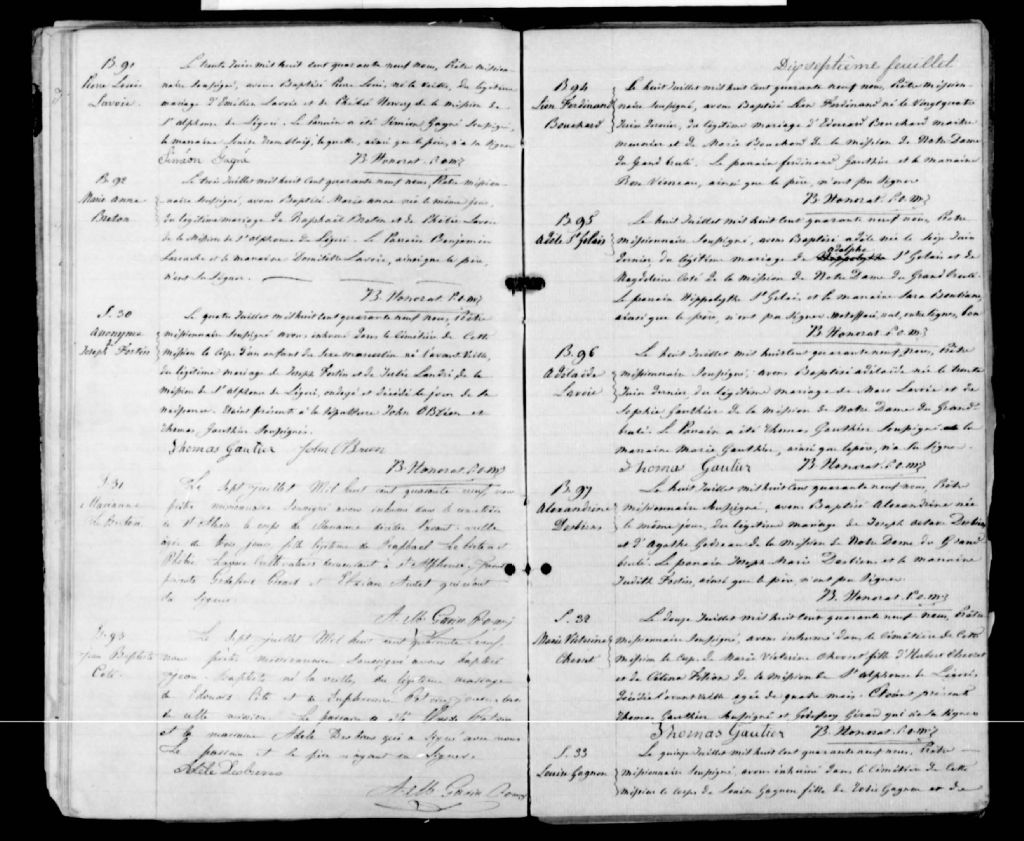 B. 91
Pierre Louis
Lavoie.
Le trente Juin mil huit cent quarante neuf nous, Prêtre mission-
naire Soussigné, avons Baptisé Pierre Louis, né la veille, du légitime
mariage d'Emilien Lavoie et de de la mission de
St alphonse de Liguori. Le Parrain a été Siméon Gagné Soussigné,
la marraine Louise laquelle, ainsi que le père, n'a su signer
Siméon Gagné B. Honorat. P.o.m.I
B. 92
Marie Anne
Breton
Le trois Juillet mil huit cent quarante neuf nous, Prêtre mission-
naire Soussigné, avons Baptisé Marie anne née le même jour,
du légitime mariage de Raphaël Breton et de Phébée Lavoie
de la Mission de St alphonse de Liguori. Le Parrain Benjamin
et la marraine Domitille Lavoie, ainsi que le père,
n'ont su Signer.
B. Honorat. P.o.m.I
S. 30
Anonyme
Joseph Fortin
Le quatre Juillet mil huit cent quarante neuf, nous, Prêtre
missionnaire Soussigné avons inhumé dans le Cimetière de Cette
mission le corps d'un enfant du Sexe masculin né l'avant veille,
du légitime mariage de Joseph Fortin et de Julie Landri de la
mission de St alphonse de Liguori, ondoyé et décédé le jour de sa
naissance. Etaient présents à la sépulture John OBrien et
Thomas Gauthier Soussignés.
Thomas Gautier John OBrien
B. Honorat. P.o.m.I
S. 31
Marianne
Le Breton
Le sept juillet Mil huit cent quarante neuf, nous
prêtre missionnaire Soussigné avons inhumé dans le cimetière
de St Alexis le corps de Marianne décédée l'avant-veille
agée de trois jours fille légitime de Raphael Le breton et
Phébée Lavoie Cultivateurs demeurant à St Alphonse; furent
présents Godefroi Girard et qui n'ont
su signer.
A. M. Garin P.o.m.j
B. 93
Jean Baptiste
Coté.
Le sept juillet Mil huit cent quarante neuf,
nous prêtre missionnaire soussigné avons baptisé
Jean-Baptiste né la veille du légitime mariage
de Edouard Coté et de Euphrosine
de cette mission. Le parrain a été
et la marraine Adèle Desbiens qui a signé avec nous
Le parrain et le père n'ayant su Signer.
Adèle Desbiens
A. M. Garin P.o.m.j
Dix septième feuillet
B. 94
Léon Ferdinand
Bouchard
Le huit Juillet mil huit cent quarante neuf nous, Prêtre mission-
naire Soussigné, avons Baptisé Léon Ferdinand né le Vingt quatre
Juin dernier, du légitime mariage d'Edouard Bouchard maître
menuisier et de Marie Bouchard de la mission de Notre Dame
du Grand brulé. Le parrain ferdinand Gauthier et la marraine
ainsi que le père, n'ont pu Signer
B. Honorat. P.o.m.I
B. 95
Adèle St Gelais
Le huit Juillet mil huit cent quarante neuf nous, Prêtre
missionnaire Soussigné, avons Baptisé adèle née le Juin
dernier, du légitime mariage de adolphe St Gelais et de
Magdeleine Coté de la mission de Notre Dame du Grand brulé.
Le parrain Hippolythe St Gelais et la marraine Sara
ainsi que le père, n'ont pu Signer. mot effacé nul, entre lignes, bon
B. Honorat. P.o.m.I
B. 96
Adélaïde
Lavoie
Le huit Juillet mil huit cent quarante neuf, nous, Prêtre
missionnaire Soussigné, avons Baptisé adélaïde née le trente
Juin dernier du légitime mariage de Marc Lavoie et de
Sophie Gauthier de la mission de Notre Dame du Grand
brulé. Le Parrain a été Thomas Gauthier Soussigné et la
marraine Marie Gauthier, ainsi que le père, n'a su Signer.
Thomas Gautier B. Honorat. P.o.m.I
B. 97
Alexandrine
Desbiens
Le huit Juillet mil huit cent quarante neuf nous, Prêtre
missionnaire Soussigné, avons Baptisé Alexandrine née
le même jour, du légitime mariage de Joseph octave Desbiens
et d'Agathe Godreau de la Mission de Notre Dame du Grand
brulé. Le parrain Joseph Marie Desbiens et la marraine
Judith Fortin, ainsi que le père, n'ont pu Signer.
B. Honorat. P.o.m.I
S. 32
Marie Victorine
Chevret
Le douze Juillet mil huit cent quarante neuf nous, Prêtre
missionnaire Soussigné, avons inhumé dans le Cimetière de Cette
mission le Corps de Marie Victorine Chevret fille d'Hubert Chevret
et de Célina Filion de la Mission de St alphonse de Liguori,
décédée l'avant veille agée de quatre mois. Etoient présents
Thomas Gauthier Soussigné et Godefroy Girard qui n'a su Signer
Thomas Gautier B. Honorat. P.o.m.I
S. 33
Louise Gagnon
Le quinze Juillet mil huit cent quarante neuf, nous, Prêtre
missionnaire Soussigné, avons inhumé dans le Cimetière de Cette
mission le Corps de Louise Gagnon fille de Gagnon et de